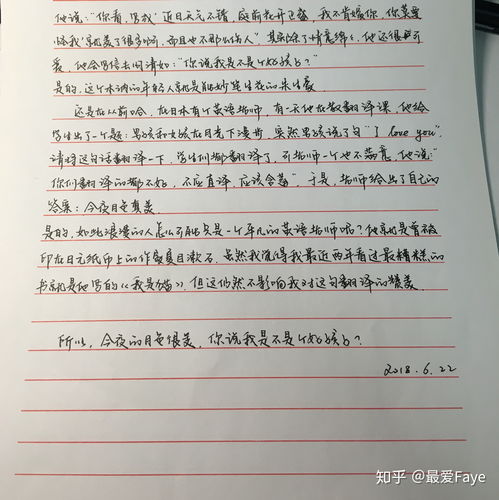 他说："你看，宋教 近日天气不错，庭前花开正盛，我不肯嫁你，你莫要
怪我 了很多啊，而且也不那么伤人"。其实除了情意绵绵，他还很可
爱，他会写信去问清如："你说我是不是个好孩子？"
是的，这个木讷的年轻人就是能妙笔生花的朱生豪。
还是在从前哈，在日本有个英语老师，有一天他在教翻译课，他给
学生出了一个题：男孩和女孩在月光下漫步，突然男孩说了句"I love you"，
请将这句话翻译一下，学生们都翻译了，可老师一个也不满意，他说"
你们翻译的都不好，不应直译，应该含蓄"，于是，老师给出了自己的
答案：今夜月色真美
是的，如此浪漫的人怎么可能只是一个平凡的英语老师呢？他就是曾被
印在日元纸币上的作家夏目漱石，虽然我觉得我最近两年看过最糟糕的
书就是他写的《我是猫》，但这仍然不影响我对这句翻译的赞美。
所以，今夜的月色很美，你说我是不是个好孩子？
2018.6.22
知乎 @最爱Faye